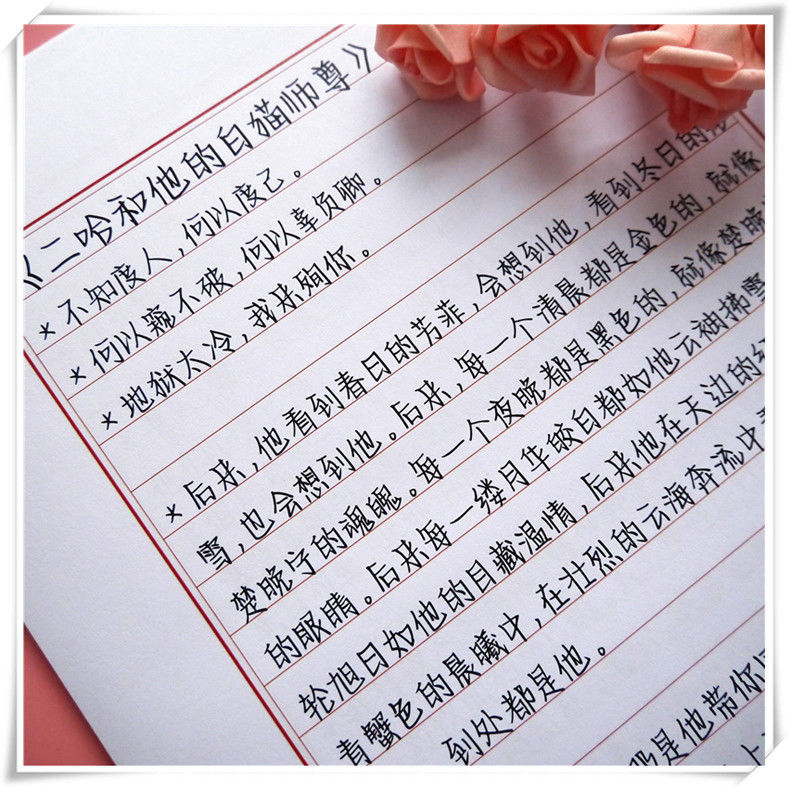 《二哈和他的白猫师尊》
* 不知度人,何以度己。
* 何以飜不破,何以辜负卿。
* 地狱太冷,我来殉你。
* 后来,他看到春日的芳菲,会想到他,看到冬日的
雪,也会想到他。后来,每一个清晨都是金色的,就像
楚晚宁的魂魄。每一个夜晚都是黑色的,就像楚晚
的眼睛。后来每一缕月华皎白都如他云袖拂雪
轮旭日如他的目藏温情,后来他在天边的
青蟹色的晨曦中,在壮烈的云海奔流中
到处都是他。
是他带你